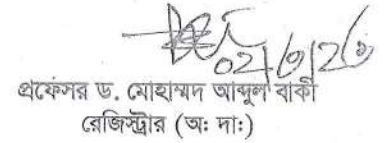 ০২/৩/২৬
প্রফেসর ড. মোহাম্মদ আব্দুল বাকী
রেজিস্ট্রার (অঃ দাঃ)